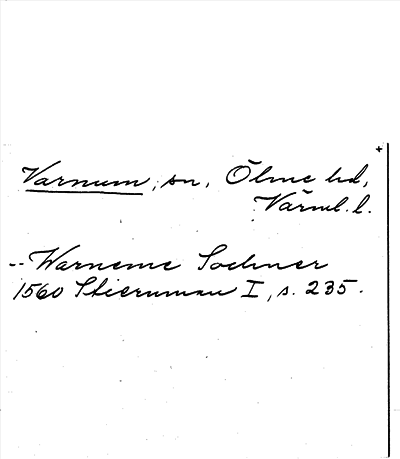 Varnum, sn, Ölme hd,
Värml. l.
-- Warneme Sochner
1560 Stiernman I, s. 235.